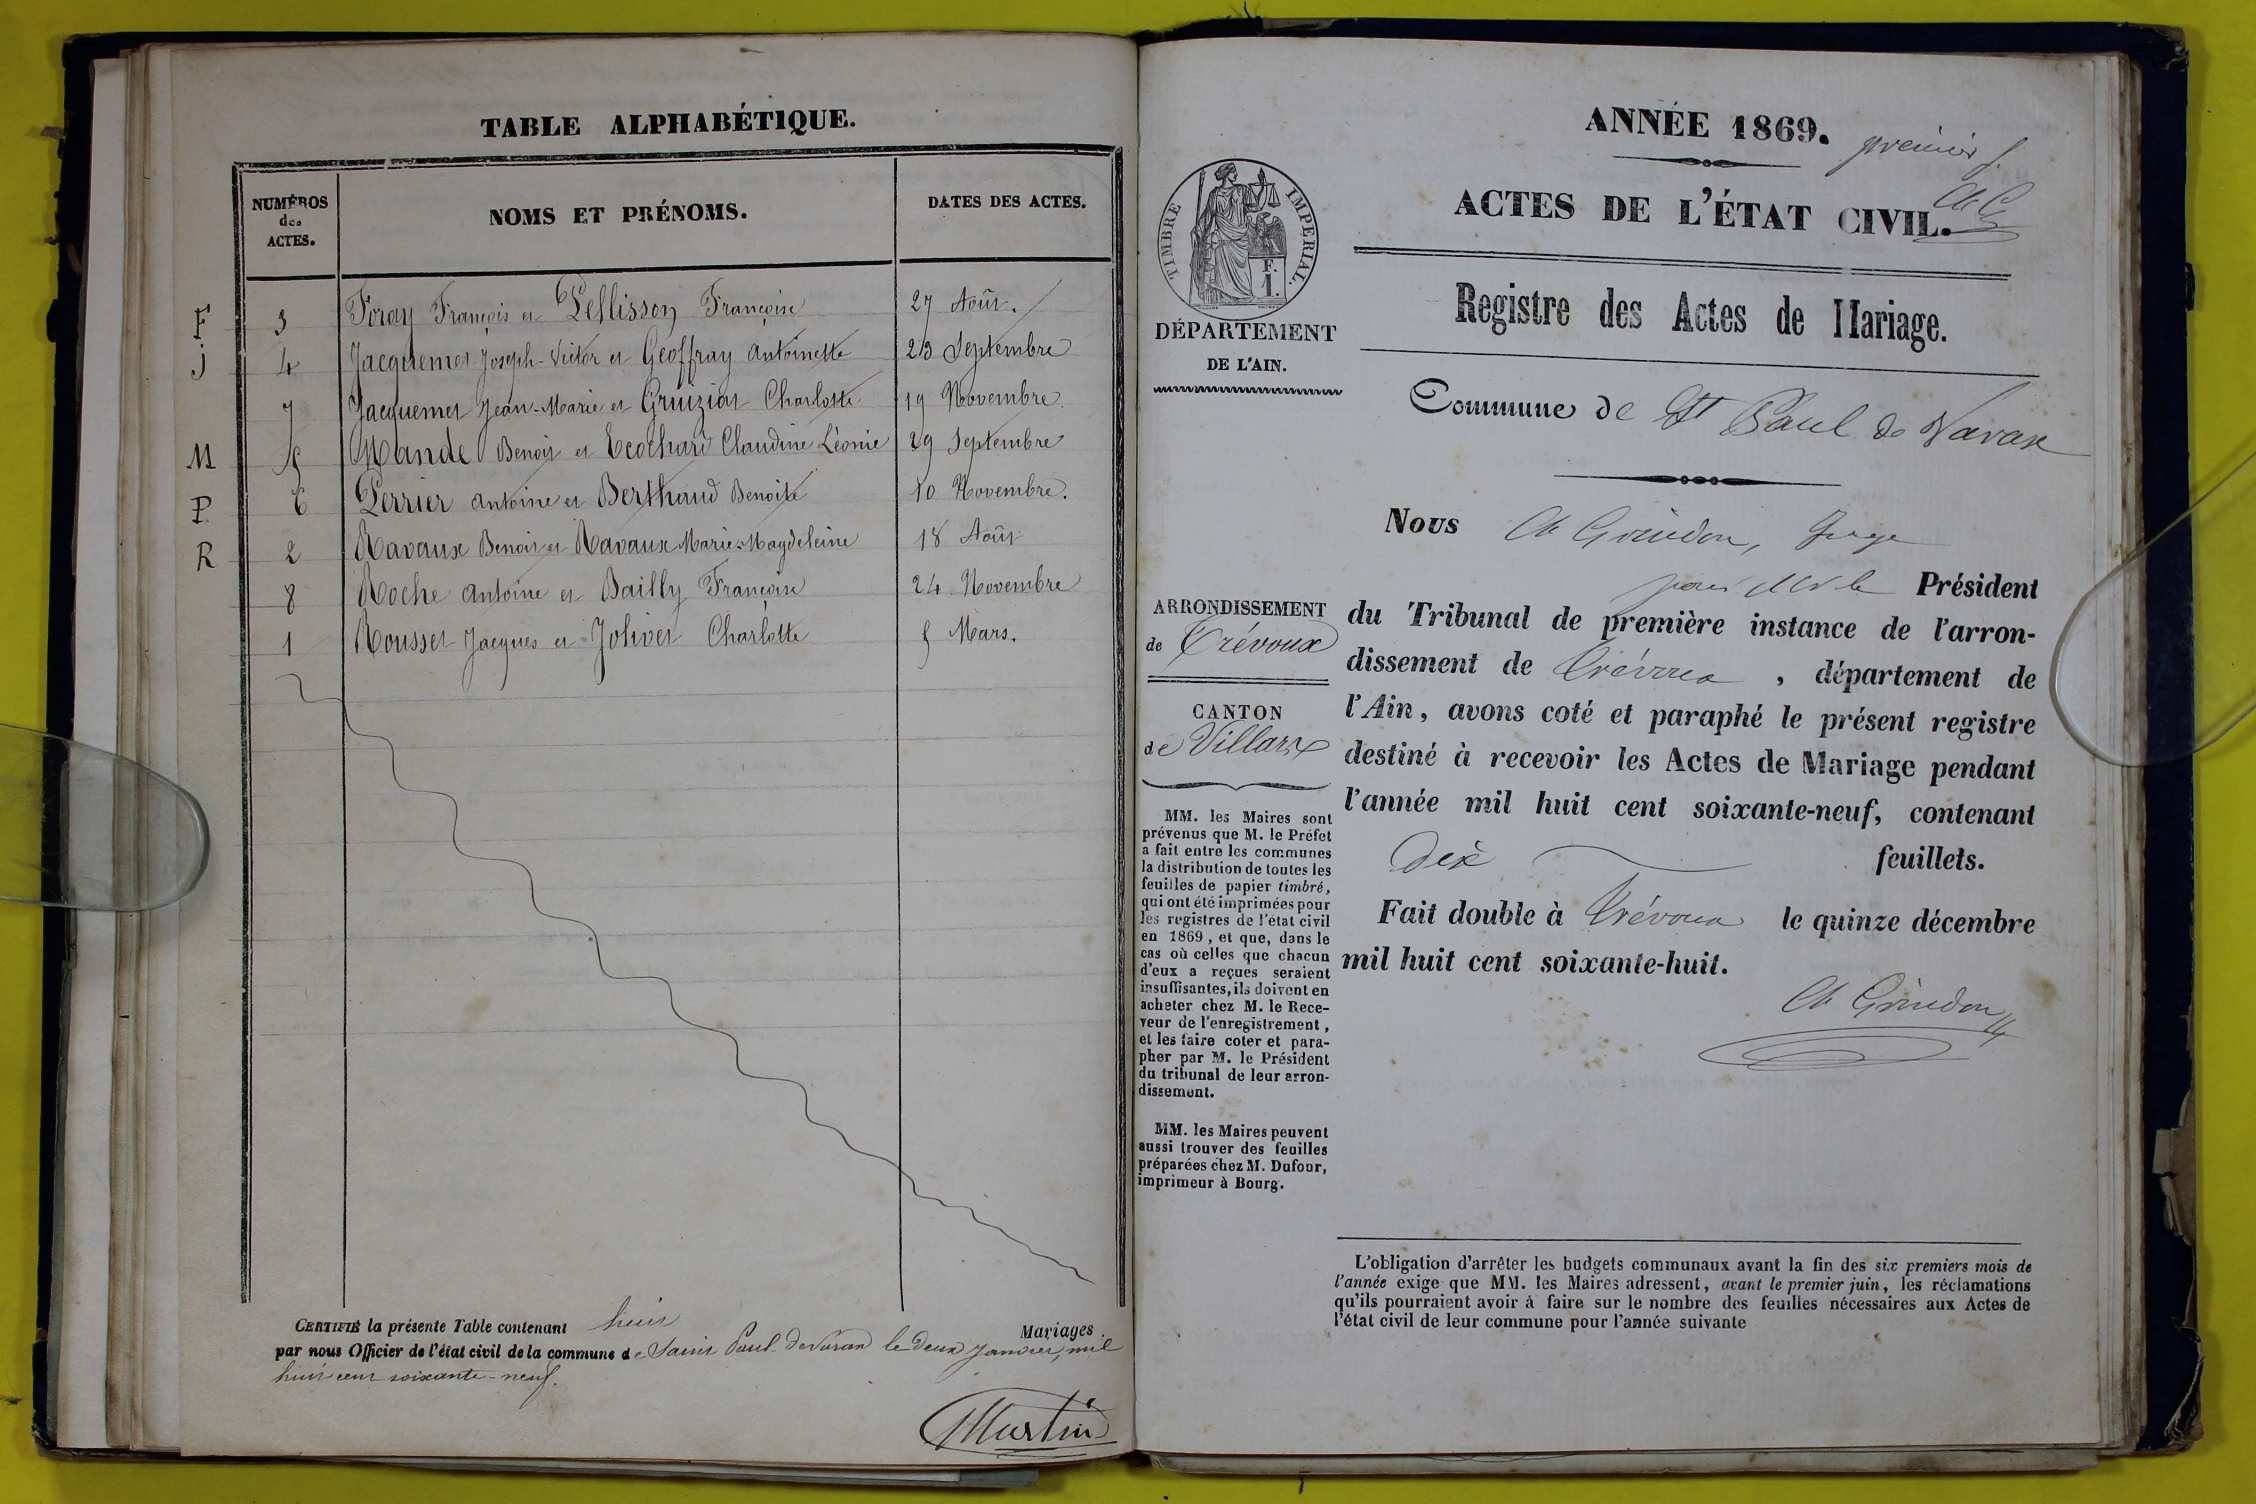 TABLE ALPHABÉTIQUE.
NUMÉROS des ACTES.
NOMS ET PRÉNOMS.
DATES DES ACTES.
F 3 Foray François et Pellisson Françoise 27 Août.
J 4 Jacquemet Joseph-Victor et Geoffray Antoinette 23 Septembre
7 Jacquemet Jean-Marie et Gruizion Charlotte 19 Novembre.
M 5 Mande Benoit et Ecochard Claudine Léonie 29 Septembre
P. 6 Perrier Antoine et Berthaud Benoite 10 Novembre.
R 2 Ravaux Benoit et Ravaux Marie-Magdeleine 18 Août
8 Roche Antoine et Bailly Françoise 24 Novembre
1 Rousset Jacques et Jolivet Charlotte 5 Mars.
CERTIFIÉ la présente Table contenant huit Mariages
par nous Officier de l'état civil de la commune de Saint Paul de Varax le deux Janvier, mil
huit cent soixante-neuf.
Martin
ANNÉE 1869.
premier f.
Ch G
ACTES DE L'ÉTAT CIVIL.
TIMBRE IMPÉRIAL.
F.
1.
DÉPARTEMENT
DE L'AIN.
Registre des Actes de Mariage.
Commune de St Paul de Varax
Nous Ch Grindon, Juge
pour Mr le Président
ARRONDISSEMENT
de Trévoux
du Tribunal de première instance de l'arron-
dissement de Trévoux, département de
l'Ain, avons coté et paraphé le présent registre
destiné à recevoir les Actes de Mariage pendant
l'année mil huit cent soixante-neuf, contenant
Dix feuillets.
Fait double à Trévoux le quinze décembre
mil huit cent soixante-huit.
Ch Grindon
CANTON
de Villars
MM. les Maires sont
prévenus que M. le Préfet
a fait entre les communes
la distribution de toutes les
feuilles de papier timbré,
qui ont été imprimées pour
les registres de l'état civil
en 1869, et que, dans le
cas où celles que chacun
d'eux a reçues seraient
insuffisantes, ils doivent en
acheter chez M. le Rece-
veur de l'enregistrement,
et les faire coter et para-
pher par M. le Président
du tribunal de leur arron-
dissement.
MM. les Maires peuvent
aussi trouver des feuilles
préparées chez M. Dufour,
imprimeur à Bourg.
L'obligation d'arrêter les budgets communaux avant la fin des six premiers mois de
l'année exige que MM. les Maires adressent, avant le premier juin, les réclamations
qu'ils pourraient avoir à faire sur le nombre des feuilles nécessaires aux Actes de
l'état civil de leur commune pour l'année suivante